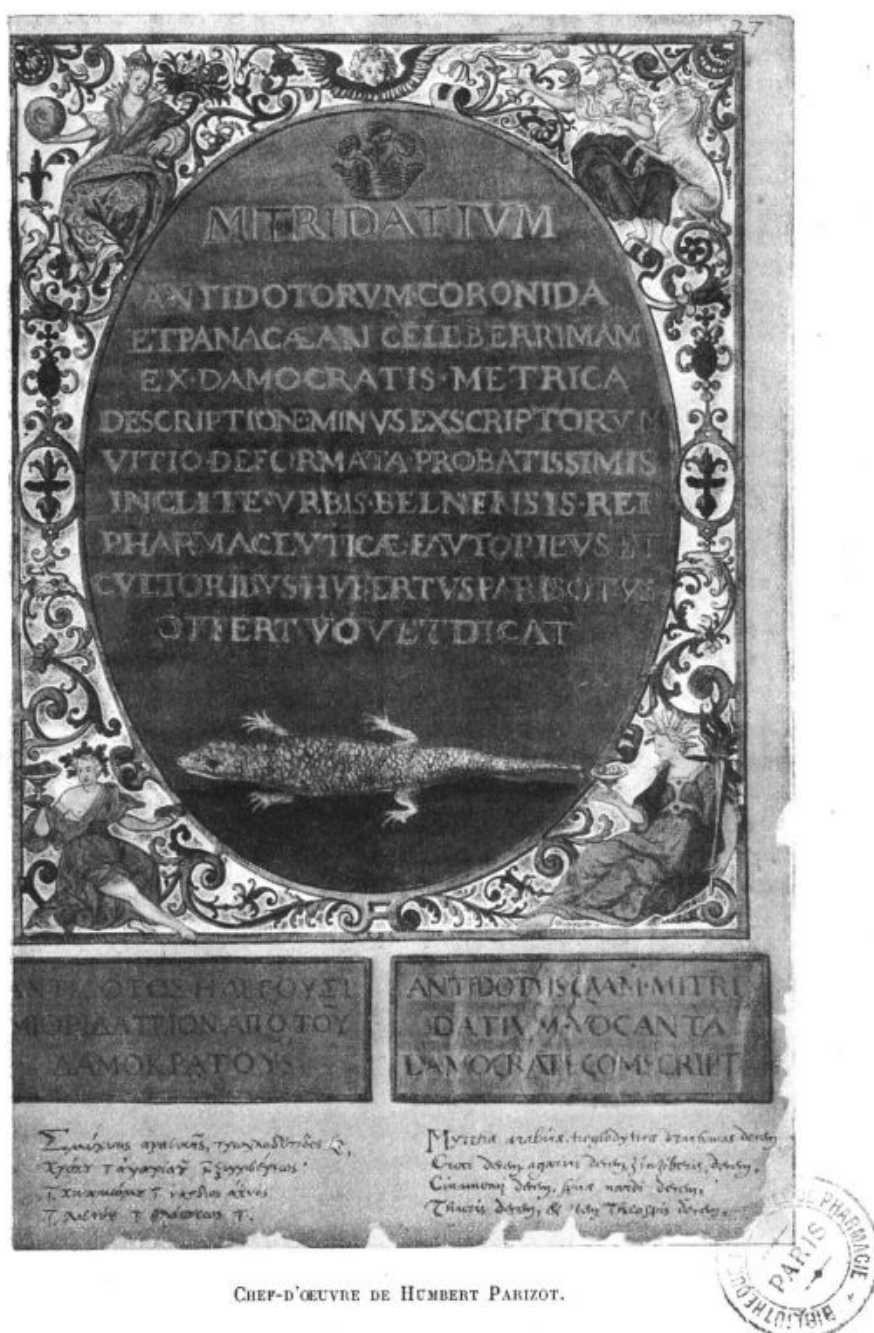 27
MITRIDATIVM
ANTIDOTORVM·CORONIDA
ET PANACÆAM CELEBERRIMAM
EX·DAMOCRATIS·METRICA
DESCRIPTIONE MINVS EXSCRIPTORVM
VITIO·DEFORMATA·PROBATISSIMIS
INCLITE·VRBIS·BELNENSIS·REI
PHARMACEVTICÆ·FAVTORIBVS ET
CVLTORIBVS HVBERTVS PARISOTVS
OFFERT VOVET DICAT
ΑΝΤΙΔΟΤΟΣ Η ΛΕΓΟΥΣΙ
ΜΙΘΡΙΔΑΤΕΙΟΝ ΑΠΟ ΤΟΥ
ΔΑΜΟΚΡΑΤΟΥΣ
ANTIDOTVS QVAM·MITRI
DATIVM·VOCANT A
DAMOCRATE CONSCRIPT
Myrrha arabica troglodytica drachmas decem
Croci decem, agarici decem, zinziberis, decem,
Cinamomi decem, spica nardi decem,
Thuris decem, & item Thlaspis decem,
CHEF-D'ŒUVRE DE HUMBERT PARIZOT.
BIBLIOTHÈQUE DE PHARMACIE
PARIS